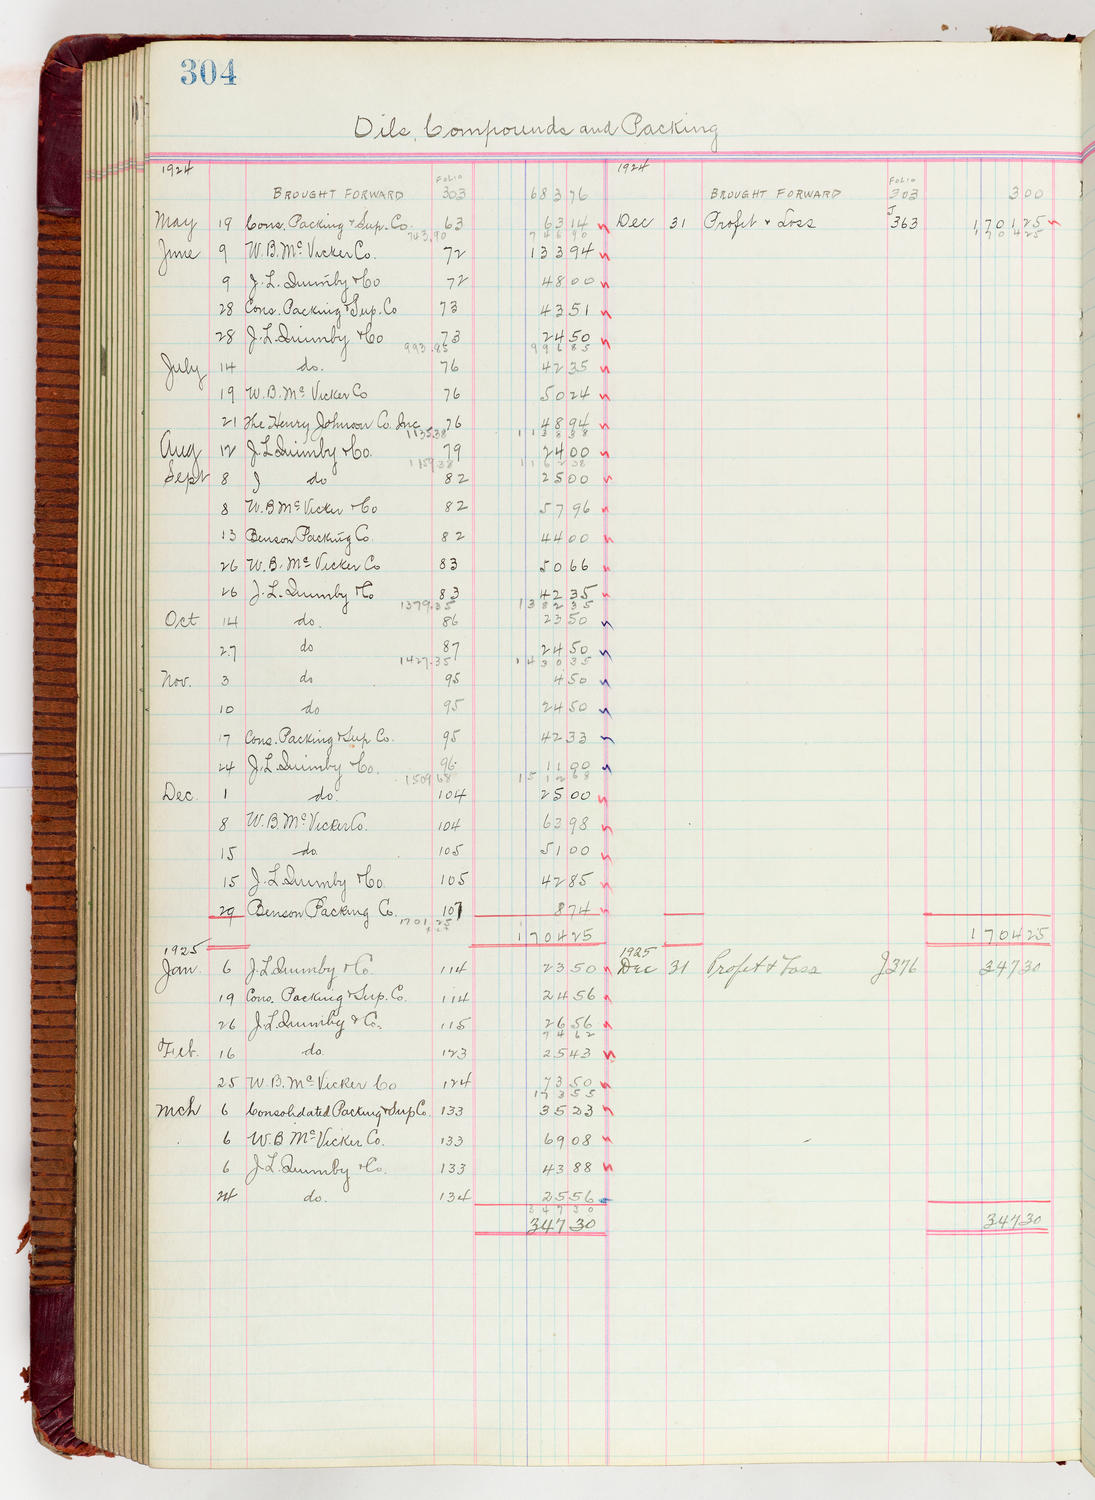 304
Oils, Compounds and Packing
1924 1924
BROUGHT FORWARD FOLIO 303 683 76 BROUGHT FORWARD FOLIO 303 3 00
May 19 Cons. Packing & Sup. Co. 63 63 14 Dec 31 Profit & Loss J 363 1 701 25
743.90 746 90 1 704 25
June 9 W.B. McVicker Co. 72 133 94
9 J.L. Quimby & Co 72 48 00
28 Cons. Packing & Sup. Co 73 43 51
28 J.L. Quimby & Co 73 24 50
993.85 996 85
July 14 do. 76 42 35
19 W.B. McVicker Co 76 50 24
21 The Henry Johnson Co. Inc 76 48 94
1135.38 1 138 38
Aug 12 J.L. Quimby & Co. 79 24 00
1159.38 1 162 38
Sept 8 J do 82 25 00
8 W.B. McVicker & Co 82 57 96
13 Benson Packing Co. 82 44 00
26 W.B. McVicker Co 83 50 66
26 J.L. Quimby & Co 83 42 35
1379.35 1 382 35
Oct 14 do. 86 23 50
27 do 87 24 50
1427.35 1 430 35
Nov. 3 do 95 4 50
10 do 95 24 50
17 Cons. Packing & Sup. Co. 95 42 33
24 J.L. Quimby & Co. 96 11 00
1509 68 1 512 68
Dec. 1 do. 104 25 00
8 W.B. McVicker Co. 104 63 98
15 do. 105 51 00
15 J.L. Quimby & Co. 105 42 85
29 Benson Packing Co. 107 8 74
1701.25
1 704 25 1 704 25
1925 1925
Jan 6 J.L. Quimby & Co. 114 23 50 Dec 31 Profit & Loss J376 347 30
19 Cons. Packing & Sup. Co. 114 24 56
26 J.L. Quimby & Co. 115 26 56
74 62
Feb. 16 do. 123 25 43
25 W.B. McVicker Co 124 73 50
173 55
Mch 6 Consolidated Packing & Sup Co. 133 35 23
6 W.B. McVicker Co. 133 69 08
6 J.L. Quimby & Co. 133 43 88
24 do. 134 25 56
347 30
347 30 347 30